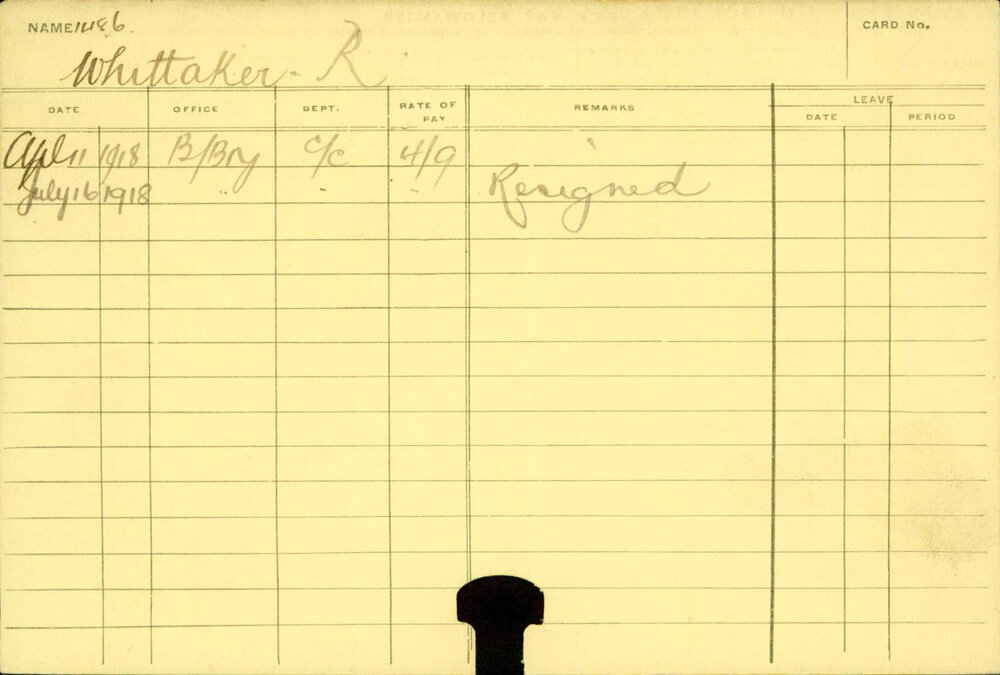 NAME 1486.
CARD No.
Whittaker - R
DATE OFFICE DEPT. RATE OF PAY REMARKS LEAVE
DATE PERIOD
Apl 11 1918 B/Bry c/c 4/9
July 16 1918 " " " Resigned